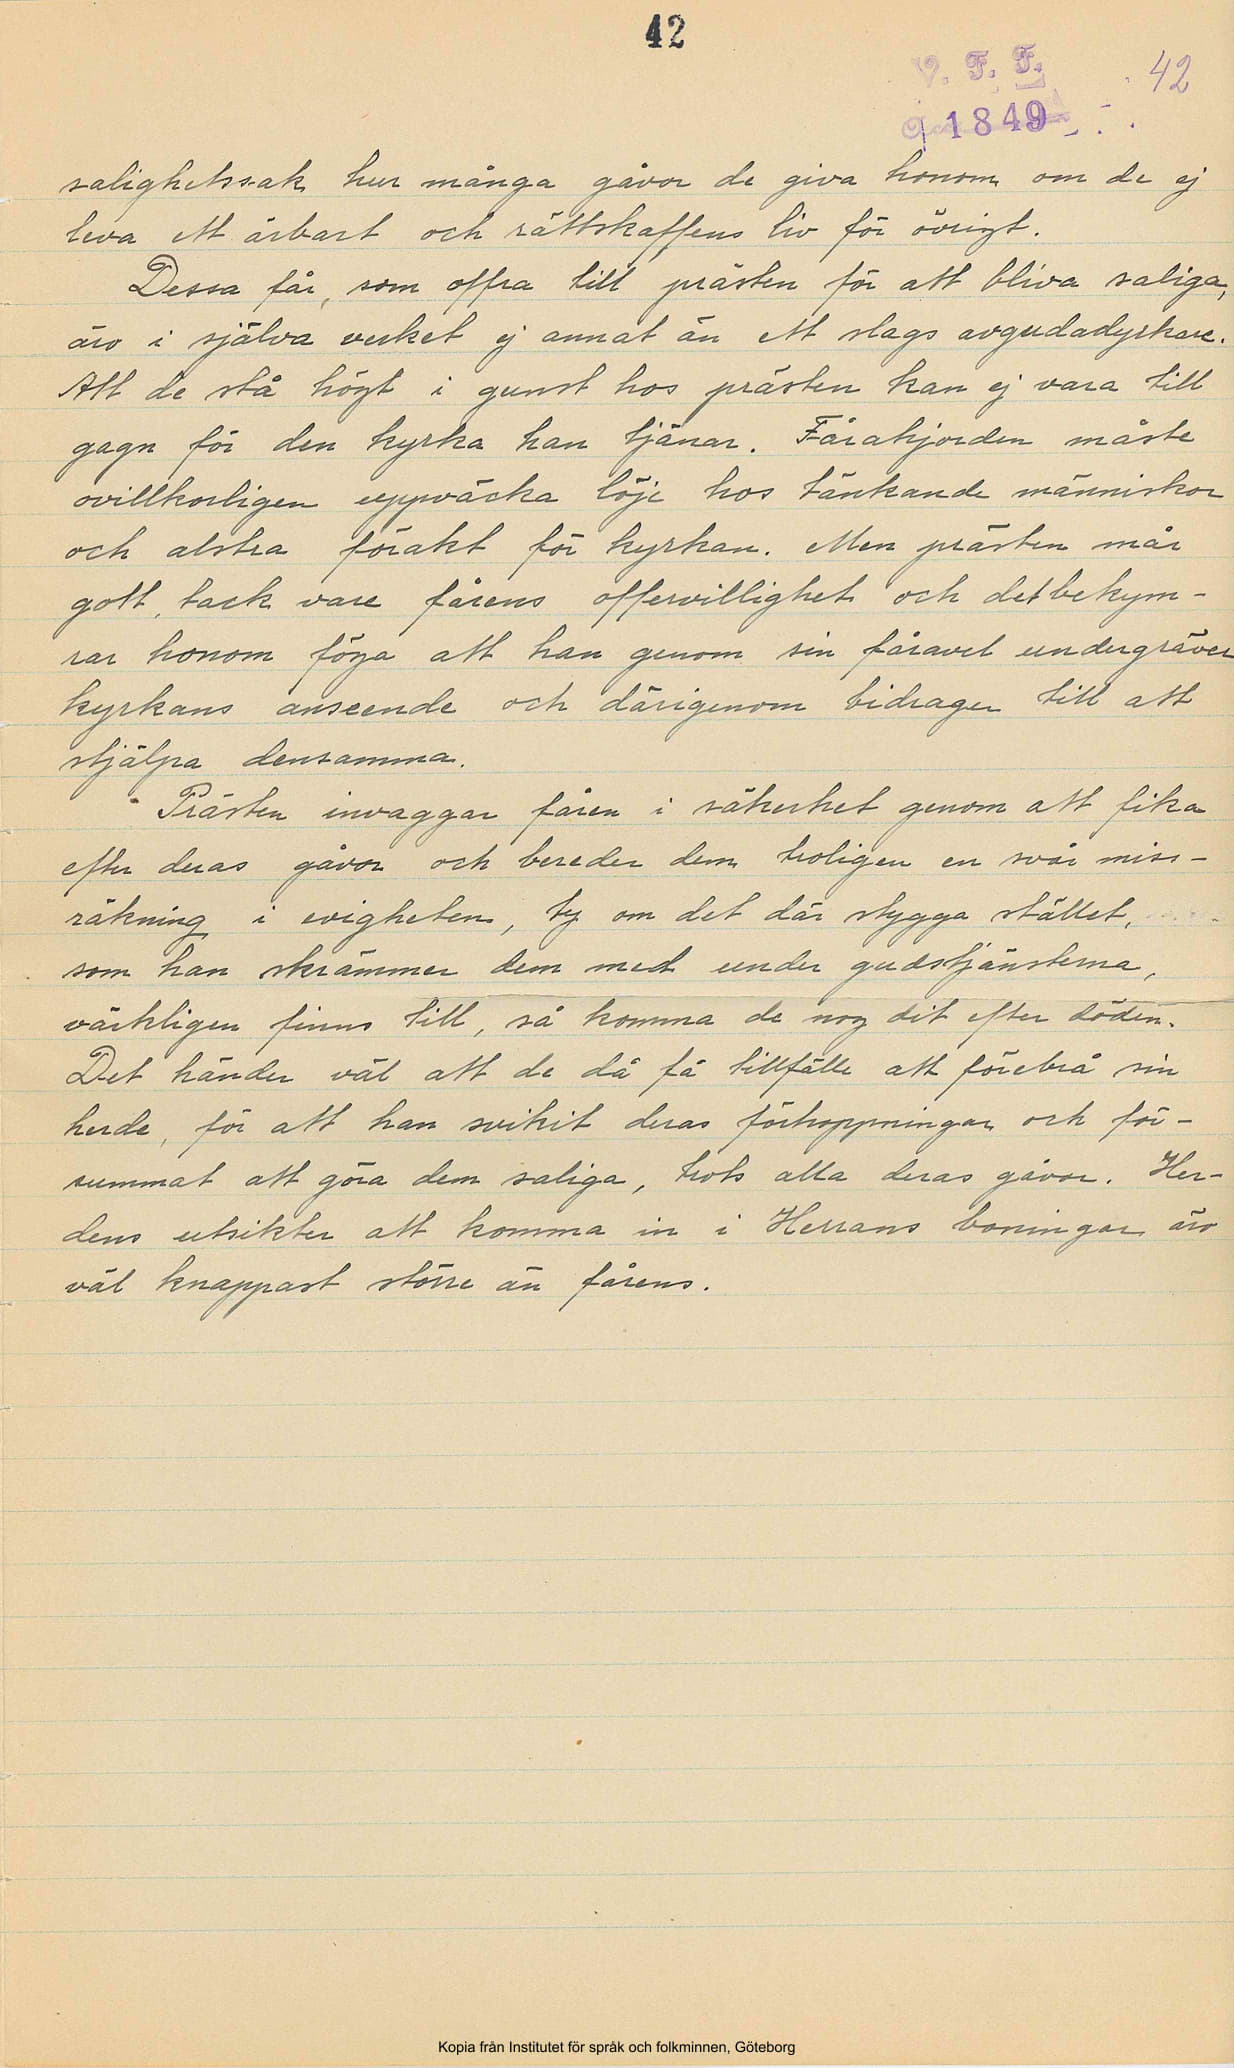 42
V. F. F. 42
1849
salighetssak hur många gåvor de giva honom om de ej
leva ett ärbart och rättskaffens liv för övrigt.
Dessa får, som offra till prästen för att bliva saliga,
äro i själva verket ej annat än ett slags avgudadyrkare.
Att de stå högt i gunst hos prästen kan ej vara till
gagn för den kyrka han tjänar. Fårahjorden måste
ovillkorligen uppväcka löje hos tänkande människor
och alstra förakt för kyrkan. Men prästen mår
gott, tack vare fårens offervillighet och det bekym-
rar honom föga att han genom sin fåravel undergräver
kyrkans anseende och därigenom bidrager till att
stjälpa densamma.
Prästen invaggar fåren i säkerhet genom att fika
efter deras gåvor och bereder dem troligen en svår miss-
räkning i evigheten, ty om det där stygga stället,
som han skrämmer dem med under gudstjänsterna,
värkligen finns till, så komma de nog dit efter döden.
Det händer väl att de då få tillfälle att förebrå sin
herde, för att han svikit deras förhoppningar och för-
summat att göra dem saliga, trots alla deras gåvor. Her-
dens utsikter att komma in i Herrans boningar äro
väl knappast större än fårens.
Kopia från Institutet för språk och folkminnen, Göteborg